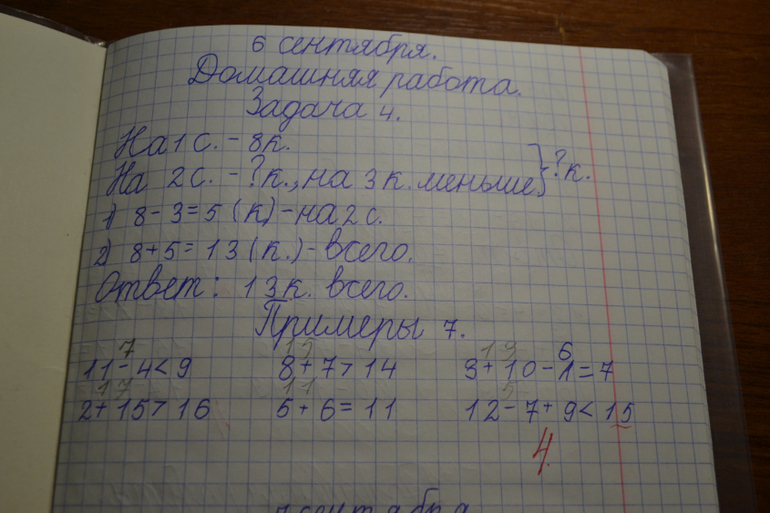 6 сентября.
Домашняя работа.
Задача 4.
На 1 с. - 8 к.
На 2 с. - ? к., на 3 к. меньше } ? к.
1) 8 - 3 = 5 (к) - на 2 с.
2) 8 + 5 = 13 (к.) - всего.
Ответ: 13 к. всего.
Примеры 7.
7 15 13 6
11 - 4 < 9 8 + 7 > 14 3 + 10 - 1 = 7
17 11 5
2 + 15 > 16 5 + 6 = 11 12 - 7 + 9 < 15
4